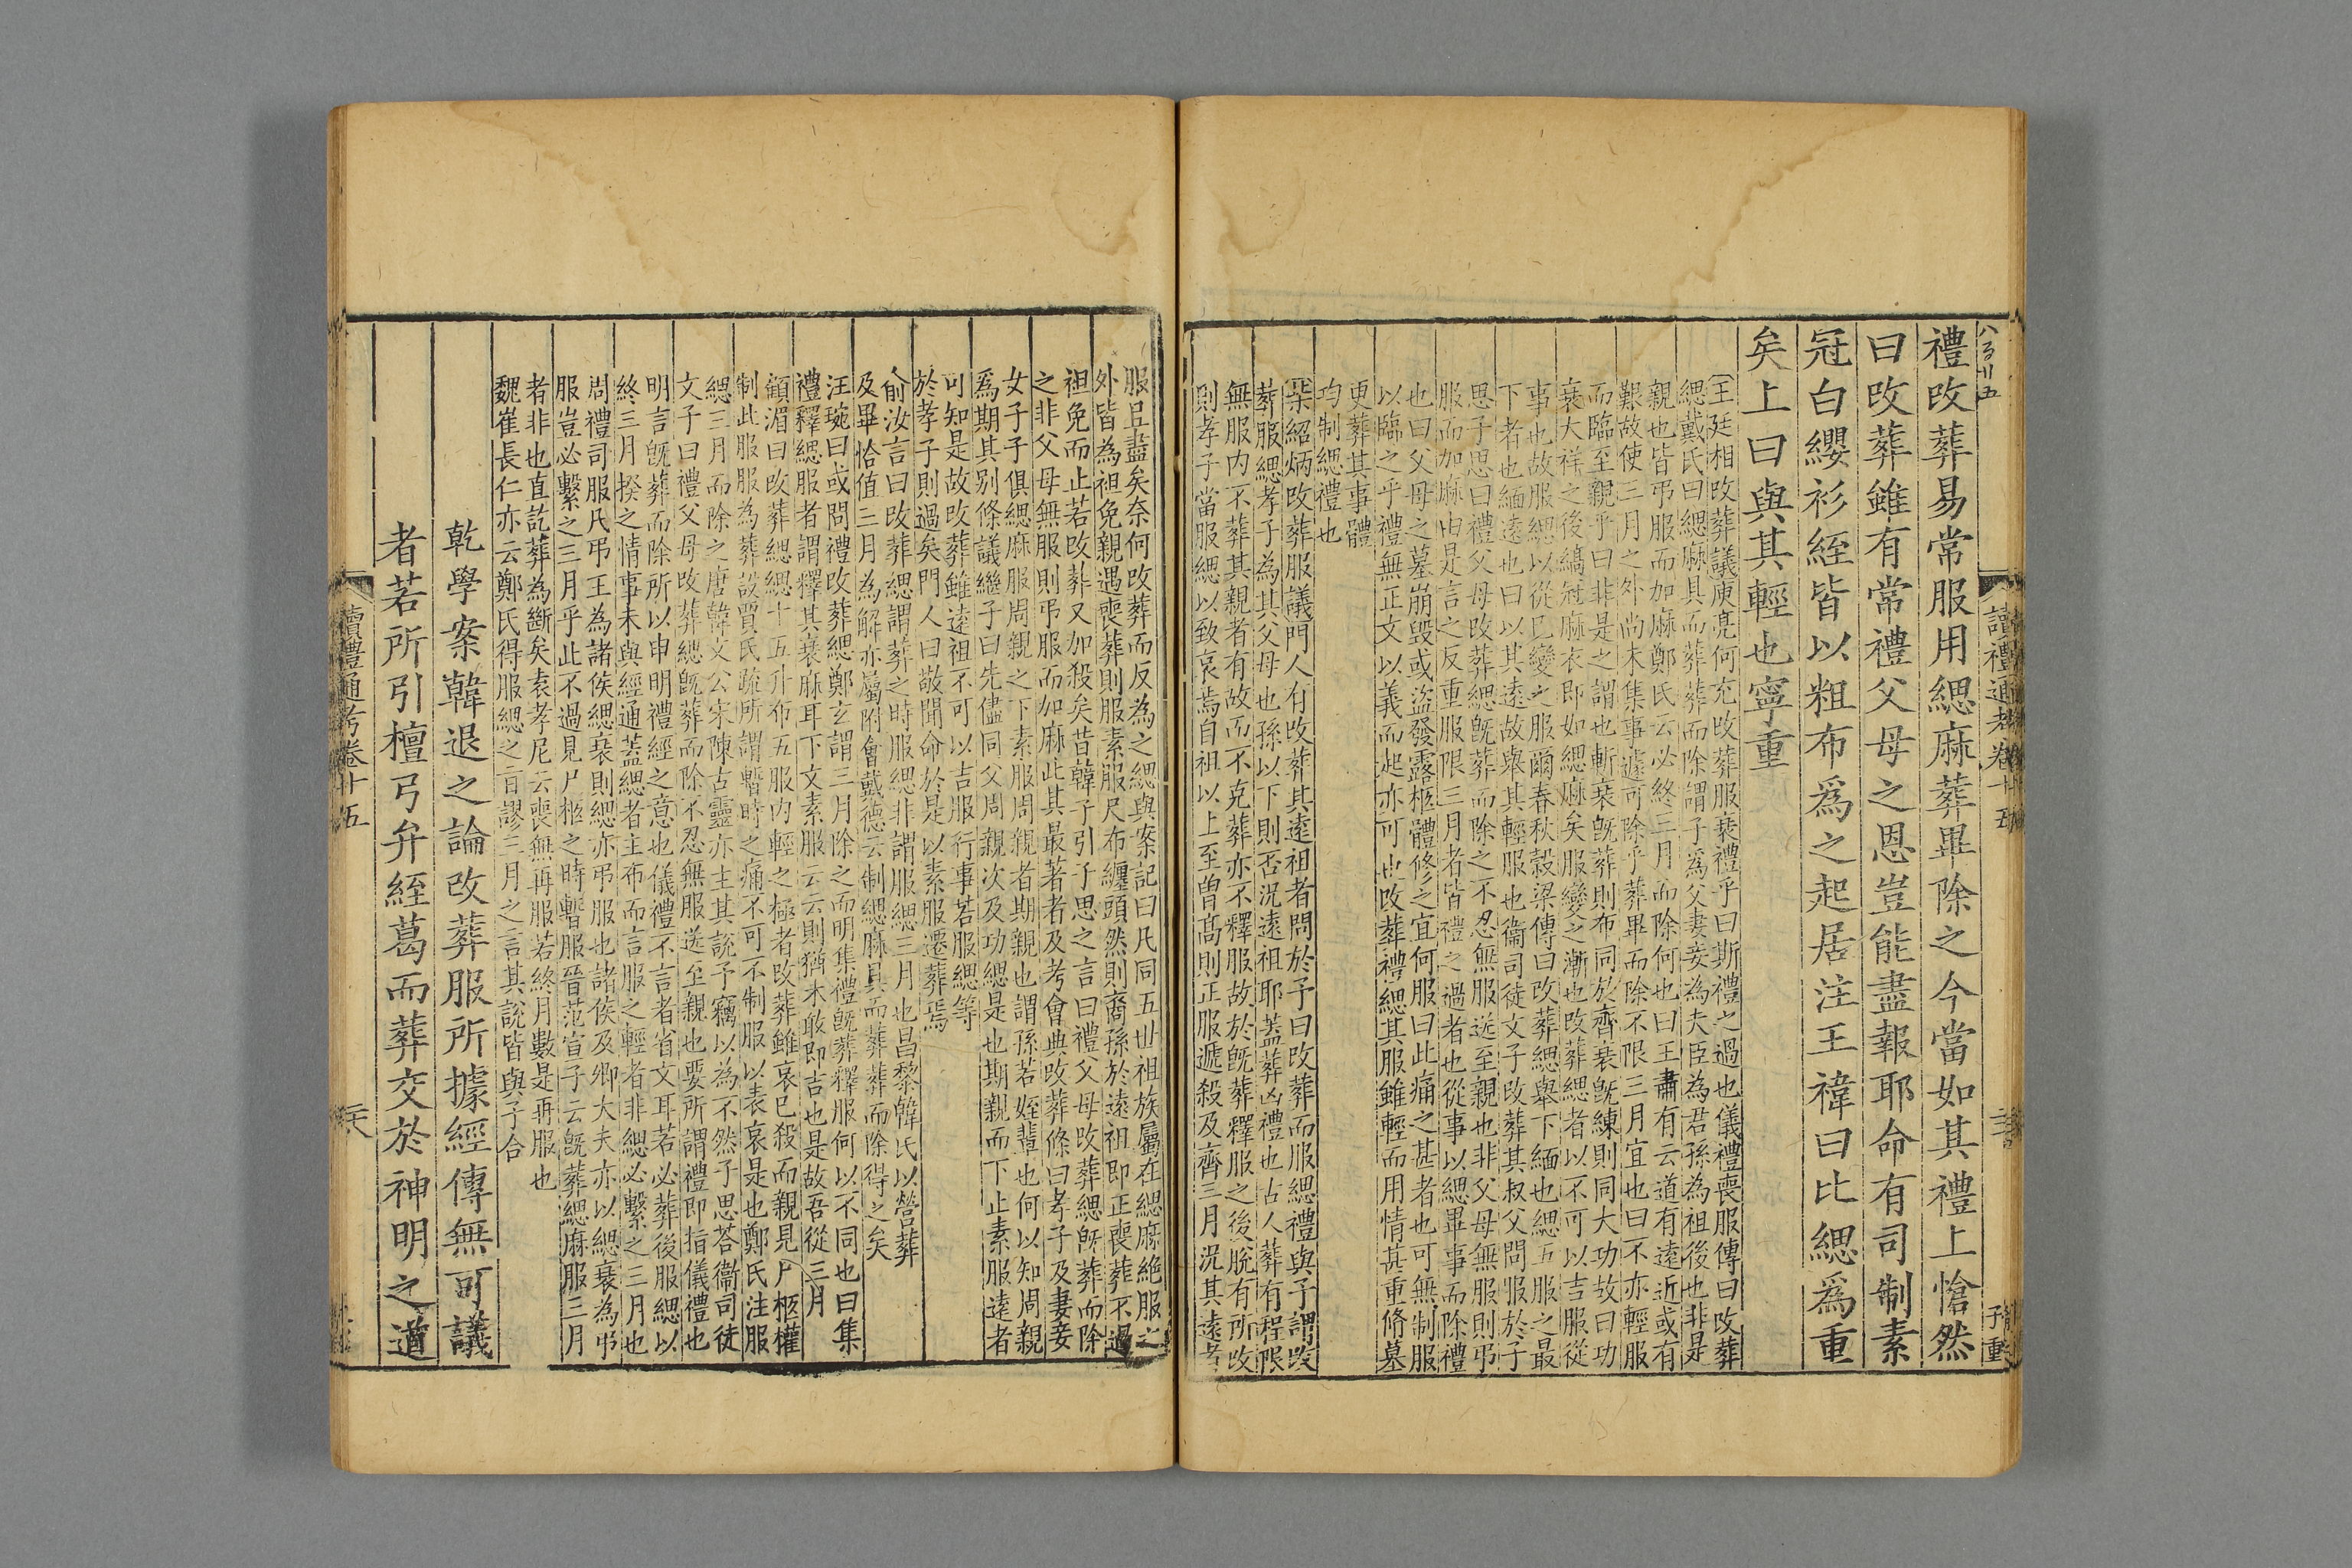 禮改葬易常服用緦麻葬畢除之今當如其禮上愴然
曰改葬雖有常禮父母之恩豈能盡報耶命有司制素
冠白纓衫絰皆以粗布爲之起居注王禕曰比緦爲重
矣上曰與其輕也寧重
王廷相改葬議庾亮何充改葬服衰禮乎曰斯禮之過也儀禮喪服傳曰改葬
緦戴氏曰緦麻具而葬葬而除謂子爲父妻妾為夫臣為君孫為祖後也非是
親也皆弔服而加麻鄭氏云必終三月而除何也曰王肅有云道有遠近或有
艱故使三月之外尚未集事遽可除乎葬畢而除不限三月宜也曰不亦輕服
而臨至親乎曰非是之謂也斬衰既葬則布同於齊衰既練則同大功故曰功
衰大祥之後縞冠麻衣即如緦麻矣服變之漸也改葬緦者以不可以吉服從
事也故服緦以從已變之服爾春秋穀梁傳曰改葬緦舉下緬也緦五服之最
下者也緬遠也曰以其遠故舉其輕服也衞司徒文子改葬其叔父問服於子
思子思曰禮父母改葬緦既葬而除之不忍無服送至親也非父母無服則弔
服而加麻由是言之反重服限三月者皆禮之過者也從事以緦畢事而除禮
也曰父母之墓崩毀或盜發露柩體修之宜何服曰此痛之甚者也可無制服
以臨之乎禮無正文以義而起亦可也改葬禮緦其服雖輕而用情甚重脩墓
更葬其事體
均制緦禮也
柴紹炳改葬服議門人有改葬其遠祖者問於予曰改葬而服緦禮與予謂改
葬服緦孝子為其父母也孫以下則否況遠祖耶蓋葬凶禮也古人葬有程限
無服内不葬其親者有故而不克葬亦不釋服故於既葬釋服之後脫有所改
則孝子當服緦以致哀焉自祖以上至曾高則正服遞殺及齊三月況其遠者
讀禮通考卷十五
服且盡矣奈何改葬而反為之緦與案記曰凡同五世祖族屬在緦麻絶服之
外皆為袒免親遇喪葬則服素服尺布纏頭然則裔孫於遠祖即正喪葬不過
袒免而止若改葬又加殺矣昔韓子引子思之言曰禮父母改葬緦既葬而除
之非父母無服則弔服而加麻此其最著者及考會典改葬條曰孝子及妻妾
女子子俱緦麻服周親之下素服周親者期親也謂孫若姪輩也何以知周親
爲期其别條議繼子曰先儘同父周親次及功緦是也期親而下止素服遠者
可知是故改葬雖遠祖不可以吉服行事若服緦等
於孝子則過矣門人曰敬聞命於是以素服遷葬焉
俞汝言曰改葬緦謂葬之時服緦非謂服緦三月也昌黎韓氏以營葬
及畢恰值三月為解亦屬附會戴德云制緦麻具而葬葬而除得之矣
汪琬曰或問禮改葬緦鄭玄謂三月除之而明集禮既葬釋服何以不同也曰集
禮釋緦服者謂釋其衰麻耳下文素服云云則猶未敢即吉也是故吾從三月
顧湄曰改葬緦緦十五升布五服内輕之極者改葬雖哀已殺而親見尸柩權
制此服服為葬設賈氏疏所謂暫時之痛不可不制服以表哀是也鄭氏注服
緦三月而除之唐韓文公宋陳古靈亦主其說予竊以為不然子思荅衞司徒
文子曰禮父母改葬緦既葬而除不忍無服送至親也要所謂禮即指儀禮也
明言既葬而除所以申明禮經之意也儀禮不言者省文耳若必葬後服緦以
終三月揆之情事未與經通蓋緦者主布而言服之輕者非緦必繫之三月也
周禮司服凡弔王為諸侯緦衰則緦亦弔服也諸侯及卿大夫亦以緦衰為弔
服豈必繫之三月乎此不過見尸柩之時暫服晉范宣子云既葬緦麻服三月
者非也直訖葬為斷矣袁孝尼云喪無再服若終月數是再服也
魏崔長仁亦云鄭氏得服緦之旨謬三月之言其說皆與予合
乾學案韓退之論改葬服所據經傳無可議
者若所引檀弓弁絰葛而葬交於神明之道
讀禮通考卷十五